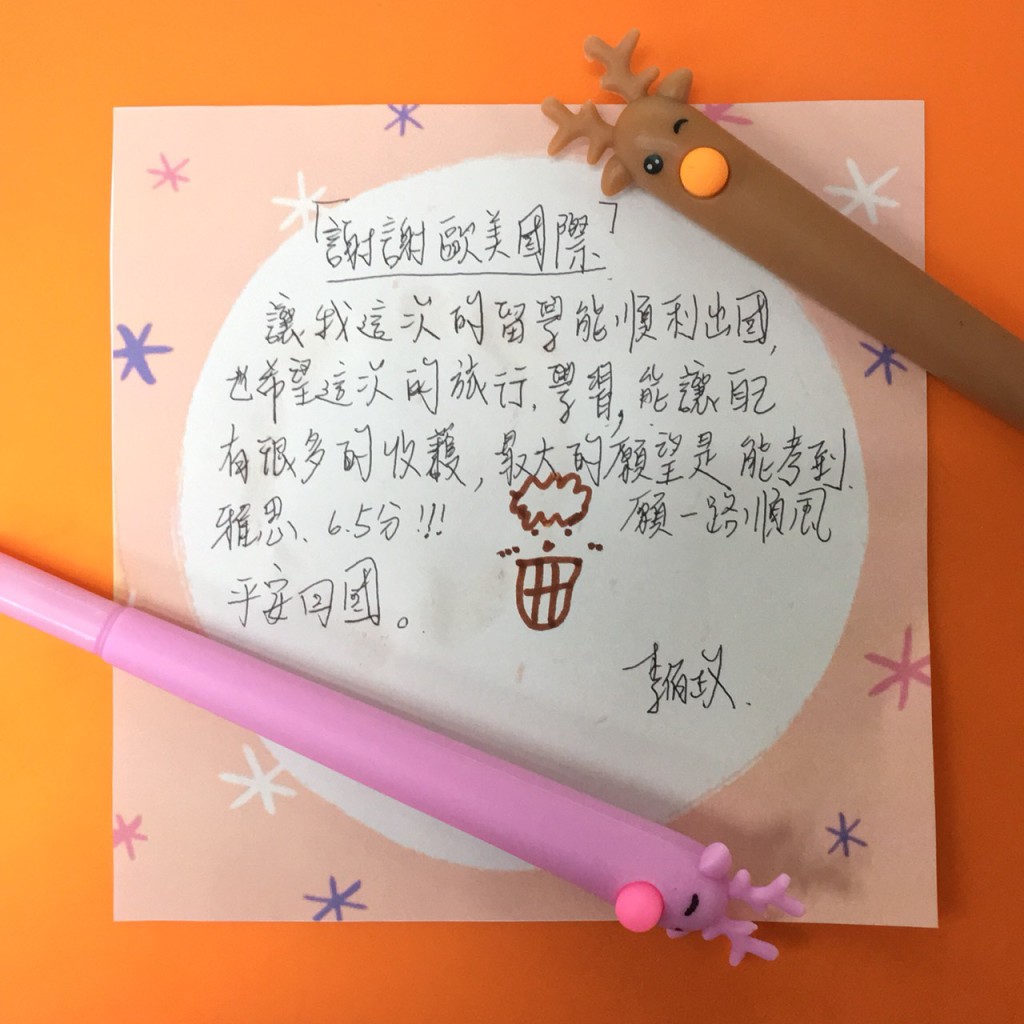 「謝謝歐美國際」
讓我這次的留學能順利出國,
也希望這次的旅行.學習,能讓自己
有很多的收穫,最大的願望是能考到
雅思、6.5分!!! 願一路順風
平安回國。
李佰